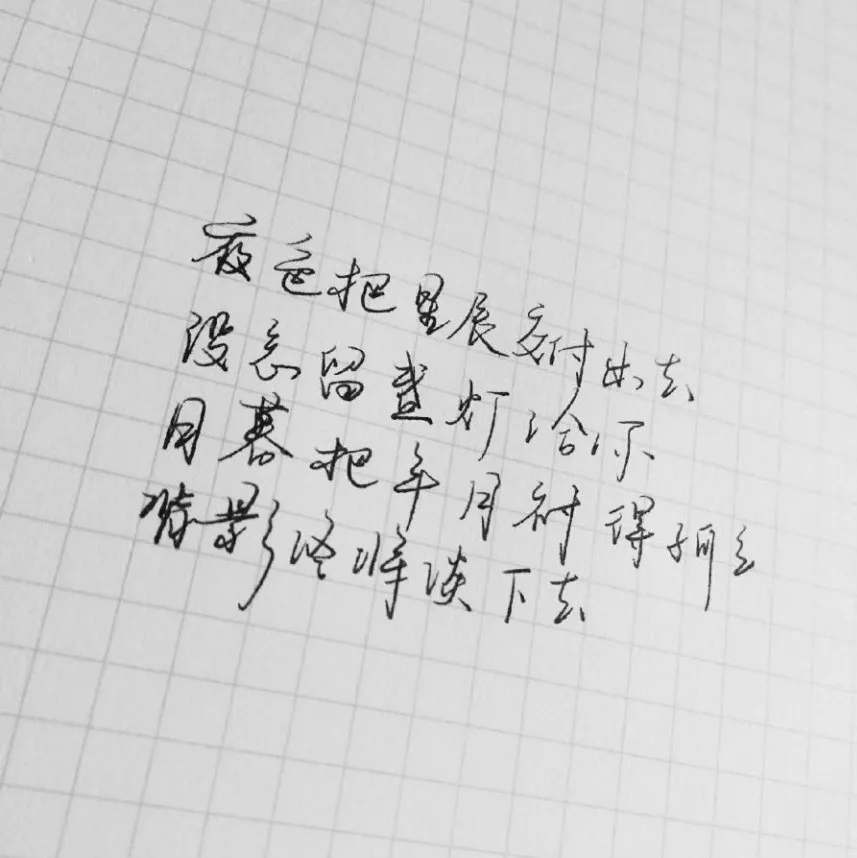 夜色把星辰交付出去
没忘留盏灯给你
日暮把年月衬得孑孑
暗影终将淡下去